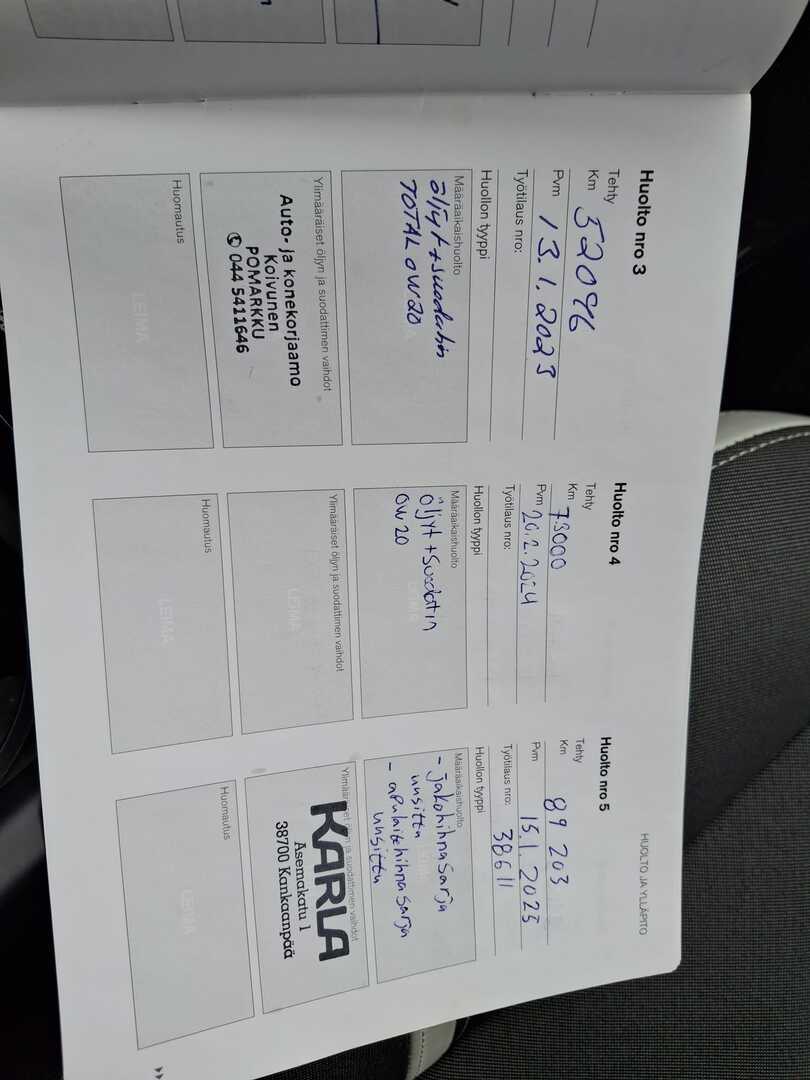 HUOLTO JA YLLÄPITO
Huolto nro 3
Tehty
Km 52096
Pvm 13.1.2023
Työtilaus nro:
Huollon tyyppi
Määräaikaishuolto
öljyt + suodatin
TOTAL 0W20
Ylimääräiset öljyn ja suodattimen vaihdot
Auto- ja konekorjaamo
Koivunen
POMARKKU
✆ 044 5411646
Huomautus
LEIMA
Huolto nro 4
Tehty
Km 73000
Pvm 20.2.2024
Työtilaus nro:
Huollon tyyppi
Määräaikaishuolto
öljyt + suodatin
0W20
LEIMA
Ylimääräiset öljyn ja suodattimen vaihdot
LEIMA
Huomautus
LEIMA
Huolto nro 5
Tehty
Km 89 203
Pvm 15.1.2025
Työtilaus nro: 38611
Huollon tyyppi
Määräaikaishuolto
- jakohihnasarja
uusittu
- apulaitehihnasarja
uusittu
LEIMA
Ylimääräiset öljyn ja suodattimen vaihdot
KARLA
Asemakatu 1
38700 Kankaanpää
Huomautus
LEIMA